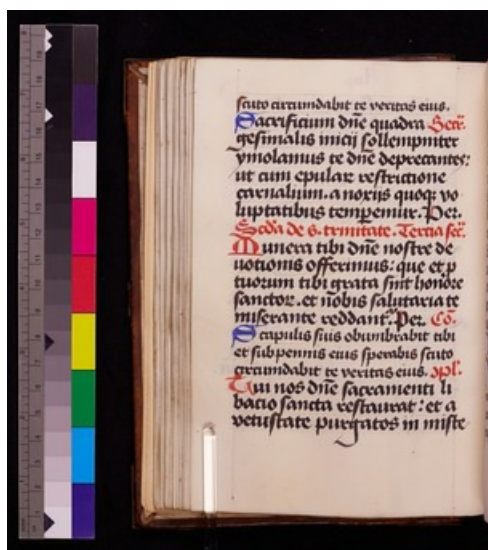 scuto circumdabit te veritas eius.
Sacrificium dn̄e quadra Secr̄.
gesimalis inicij sollempniter
ymolamus te dn̄e deprecantes:
ut cum epular̄ restrictione
carnalium. a noxijs quoq; vo
luptatibus temperemur. Per.
Sc̄da de s. trinitate. Tercia secr̄.
Munera tibi dn̄e nostre de
uotionis offerimus: que et p
tuorum tibi grata sint honore
sanctor̄. et nobis salutaria te
miserante reddant̄. Per. Cō.
Scapulis suis obumbrabit tibi
et sub pennis eius sperabis scuto
circumdabit te veritas eius. 9pl.
Qui nos dn̄e sacramenti li
bacio sancta restaurat: et a
vetustate purgatos in miste